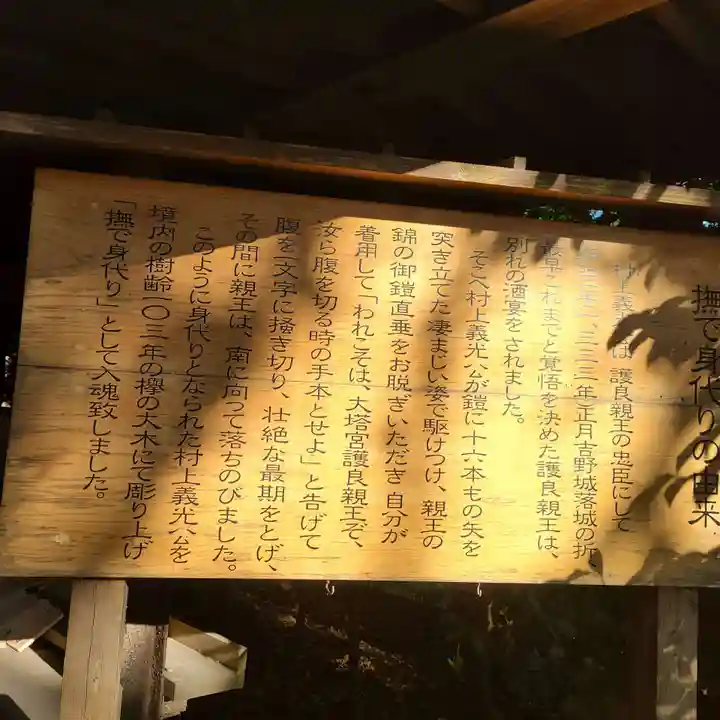 撫で身代りの由来
村上義光公は 護良親王の忠臣にして
一三三三年正月吉野城落城の折、
最早これまでと覚悟を決めた護良親王は、
別れの酒宴をされました。
そこへ村上義光公が鎧に十六本もの矢を
突き立てた凄まじい姿で駆けつけ、親王の
錦の御鎧直垂をお脱ぎいただき 自分が
着用して「われこそは、大塔宮護良親王ぞ、
汝ら腹を切る時の手本とせよ」と告げて
腹を一文字に掻き切り、壮絶な最期をとげ、
その間に親王は、南に向って落ちのびました。
このように身代りとなられた村上義光公を
境内の樹齢一〇三年の欅の大木にて彫り上げ
「撫で身代り」として入魂致しました。